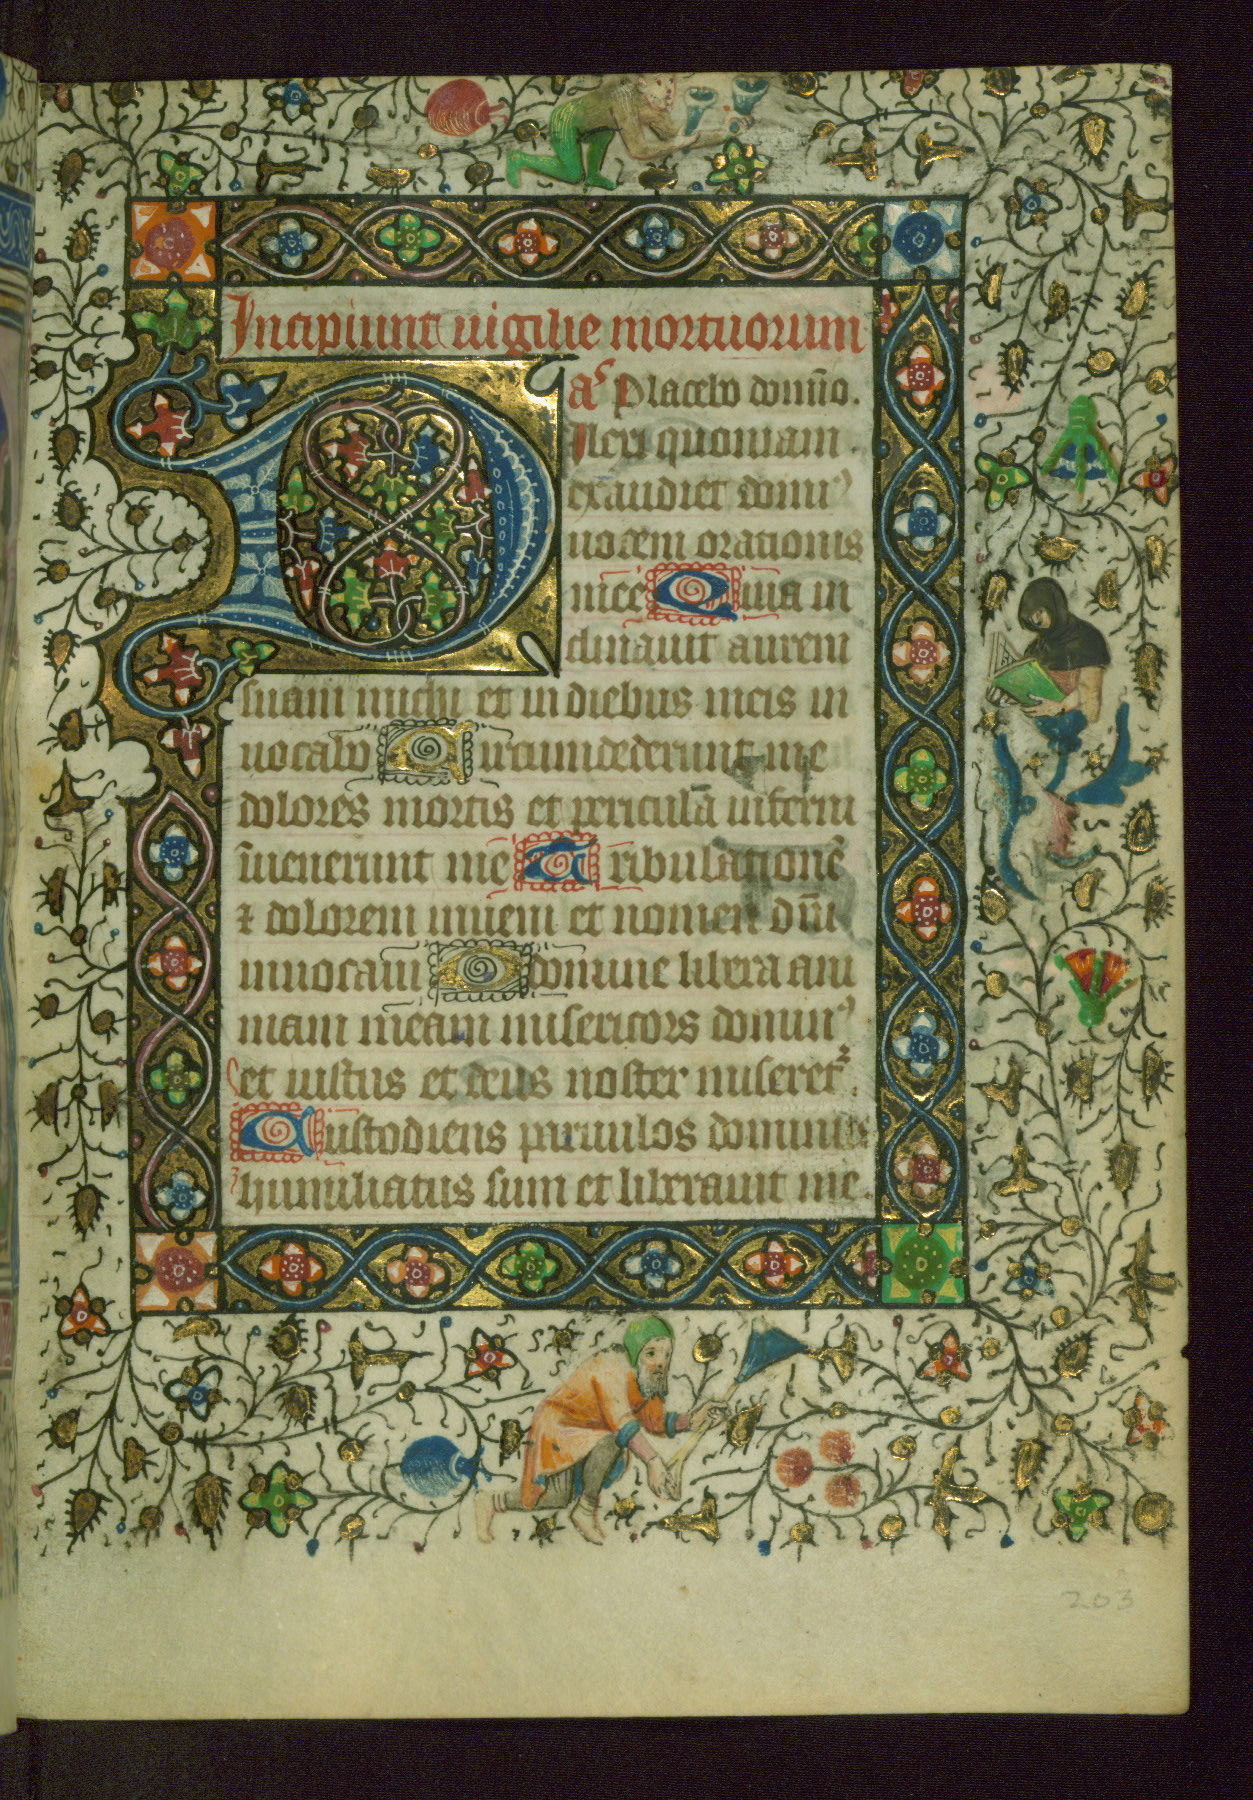 Incipiunt uigilie mortuorum
aͨ Placebo domīo.
D ilexi quoniam
exaudiet domin⁹
uocem orationis
mee Quia in
clinauit aurem
suam michi et in diebus meis in
uocabo Circumdederunt me
dolores mortis et pericula inferni
īuenerunt me Tribulationē
⁊ dolorem inueni et nomen dn̄i
inuocaui O domine libera ani
mam meam misericors domin⁹
et iustus et deus noster miseret᷑.
Custodiens paruulos dominus
humiliatus sum et liberauit me.
203